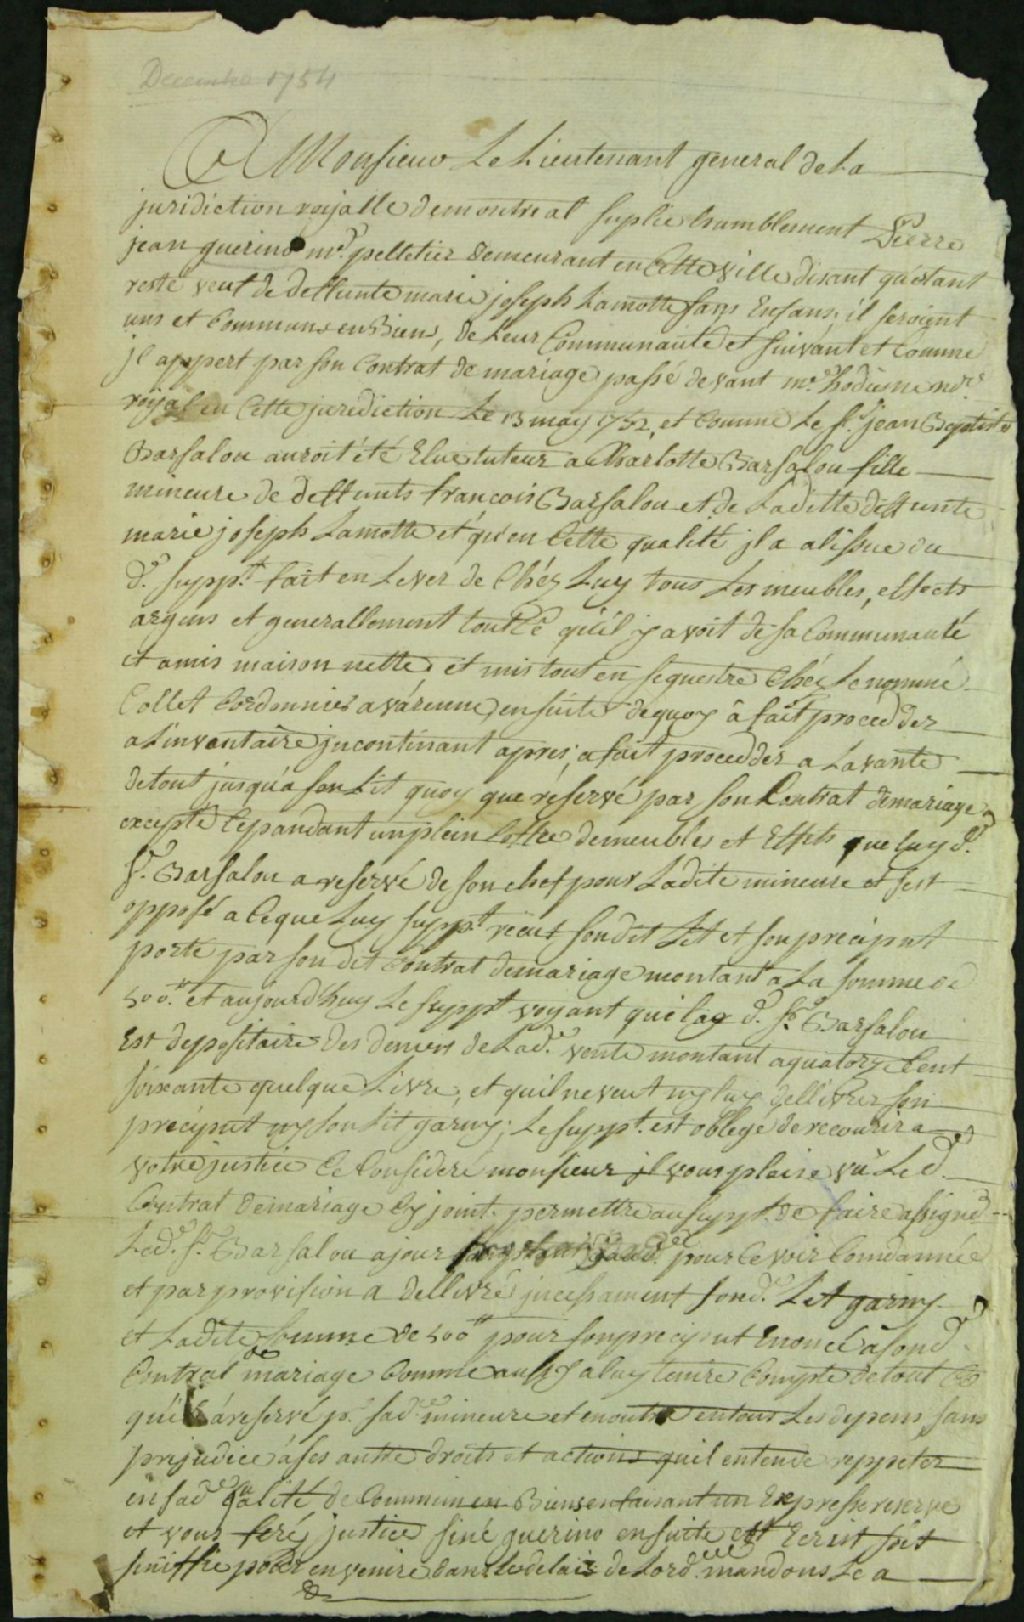 Decembre 1754
A Monsieur Le Lieutenant general de La
juridiction royalle de montreal suplie humblement Pierre
jean guerino md. pelletier demeurant en Cette ville disant qu'étant
resté veuf de deffunte marie joseph Lamotte sans Enfans, il seroient
uns et Communs en Biens, de Leur Communauté et suivant et Comme
jl appert par son Contrat de mariage passé devant me. hodiesne nore.
royal en Cette jurediction Le 13 may 1752, et Comme Le sr. jean Baptiste
Barsalou auroit été Elue tuteur a Charlotte Barsalou fille
mineure de deffunts francois Barsalou et de Laditte deffunte
marie joseph Lamotte et qu'en Cette qualité jl a alissue du
d. suppt. fait en Lever de Chéz Luy tous Les meubles, effects
argens et generallement tout Ce qu'il y avoit de sa Communauté
et amis maison nette, et mis tout en sequestre Chéz Le nommé
Collet Cordonnier a várenne, ensuite dequoy â fait procedder
a Linvantaire jncontinant apres, a fait procedder a La vante
de tout jusqu'a son Lit quoy que réservé par son Contrat de mariage
excepté Cepandant un plein Coffre de meubles et Effets que Luy d.
sr. Barsalou a reservé de son chef pour Ladite mineure et sest
opposé a Ceque Luy suppt. reçut son dit Lit et son préciput
porté par son dit Contrat de mariage montant a La somme de
500.# et aujourd'huy Le suppt voyant que Le d. sr. Barsalou
Est depositaire des deniers de Lad. vente montant a quatorze Cent
soixante quelque Livre, et quil ne veut ny Luy dellivrer son
préciput ny son Lit garny; Le suppt. est oblegé de recourir a
votre justice Ce Consideré monsieur jl vous plaise vû Le d.
Contrat de mariage Cy joint permettre au suppt. de faire assigné
Led. sr. Barsalou a jour pour Ce voir Comdamnée
et par provision a dellivré jncessament sond. Lit garny
et Ladite Somme de 500# pour son preciput Enoncé a sond.
Contrat de mariage Comme aussy a luy tenire Compte de tout Ce
qu'il á reservé pr. sad. mineure et en outre en tous Les depens sans
prejudice á ses autre droits et actions quil entende reppeter
en sad. qualité de Commun en Biens en faisant un Expresse reserve
et vous feré justice siné guerino ensuite est Ecrit soit
siniffié pour en venire dans Le delais de Lord.ce mandons Le a